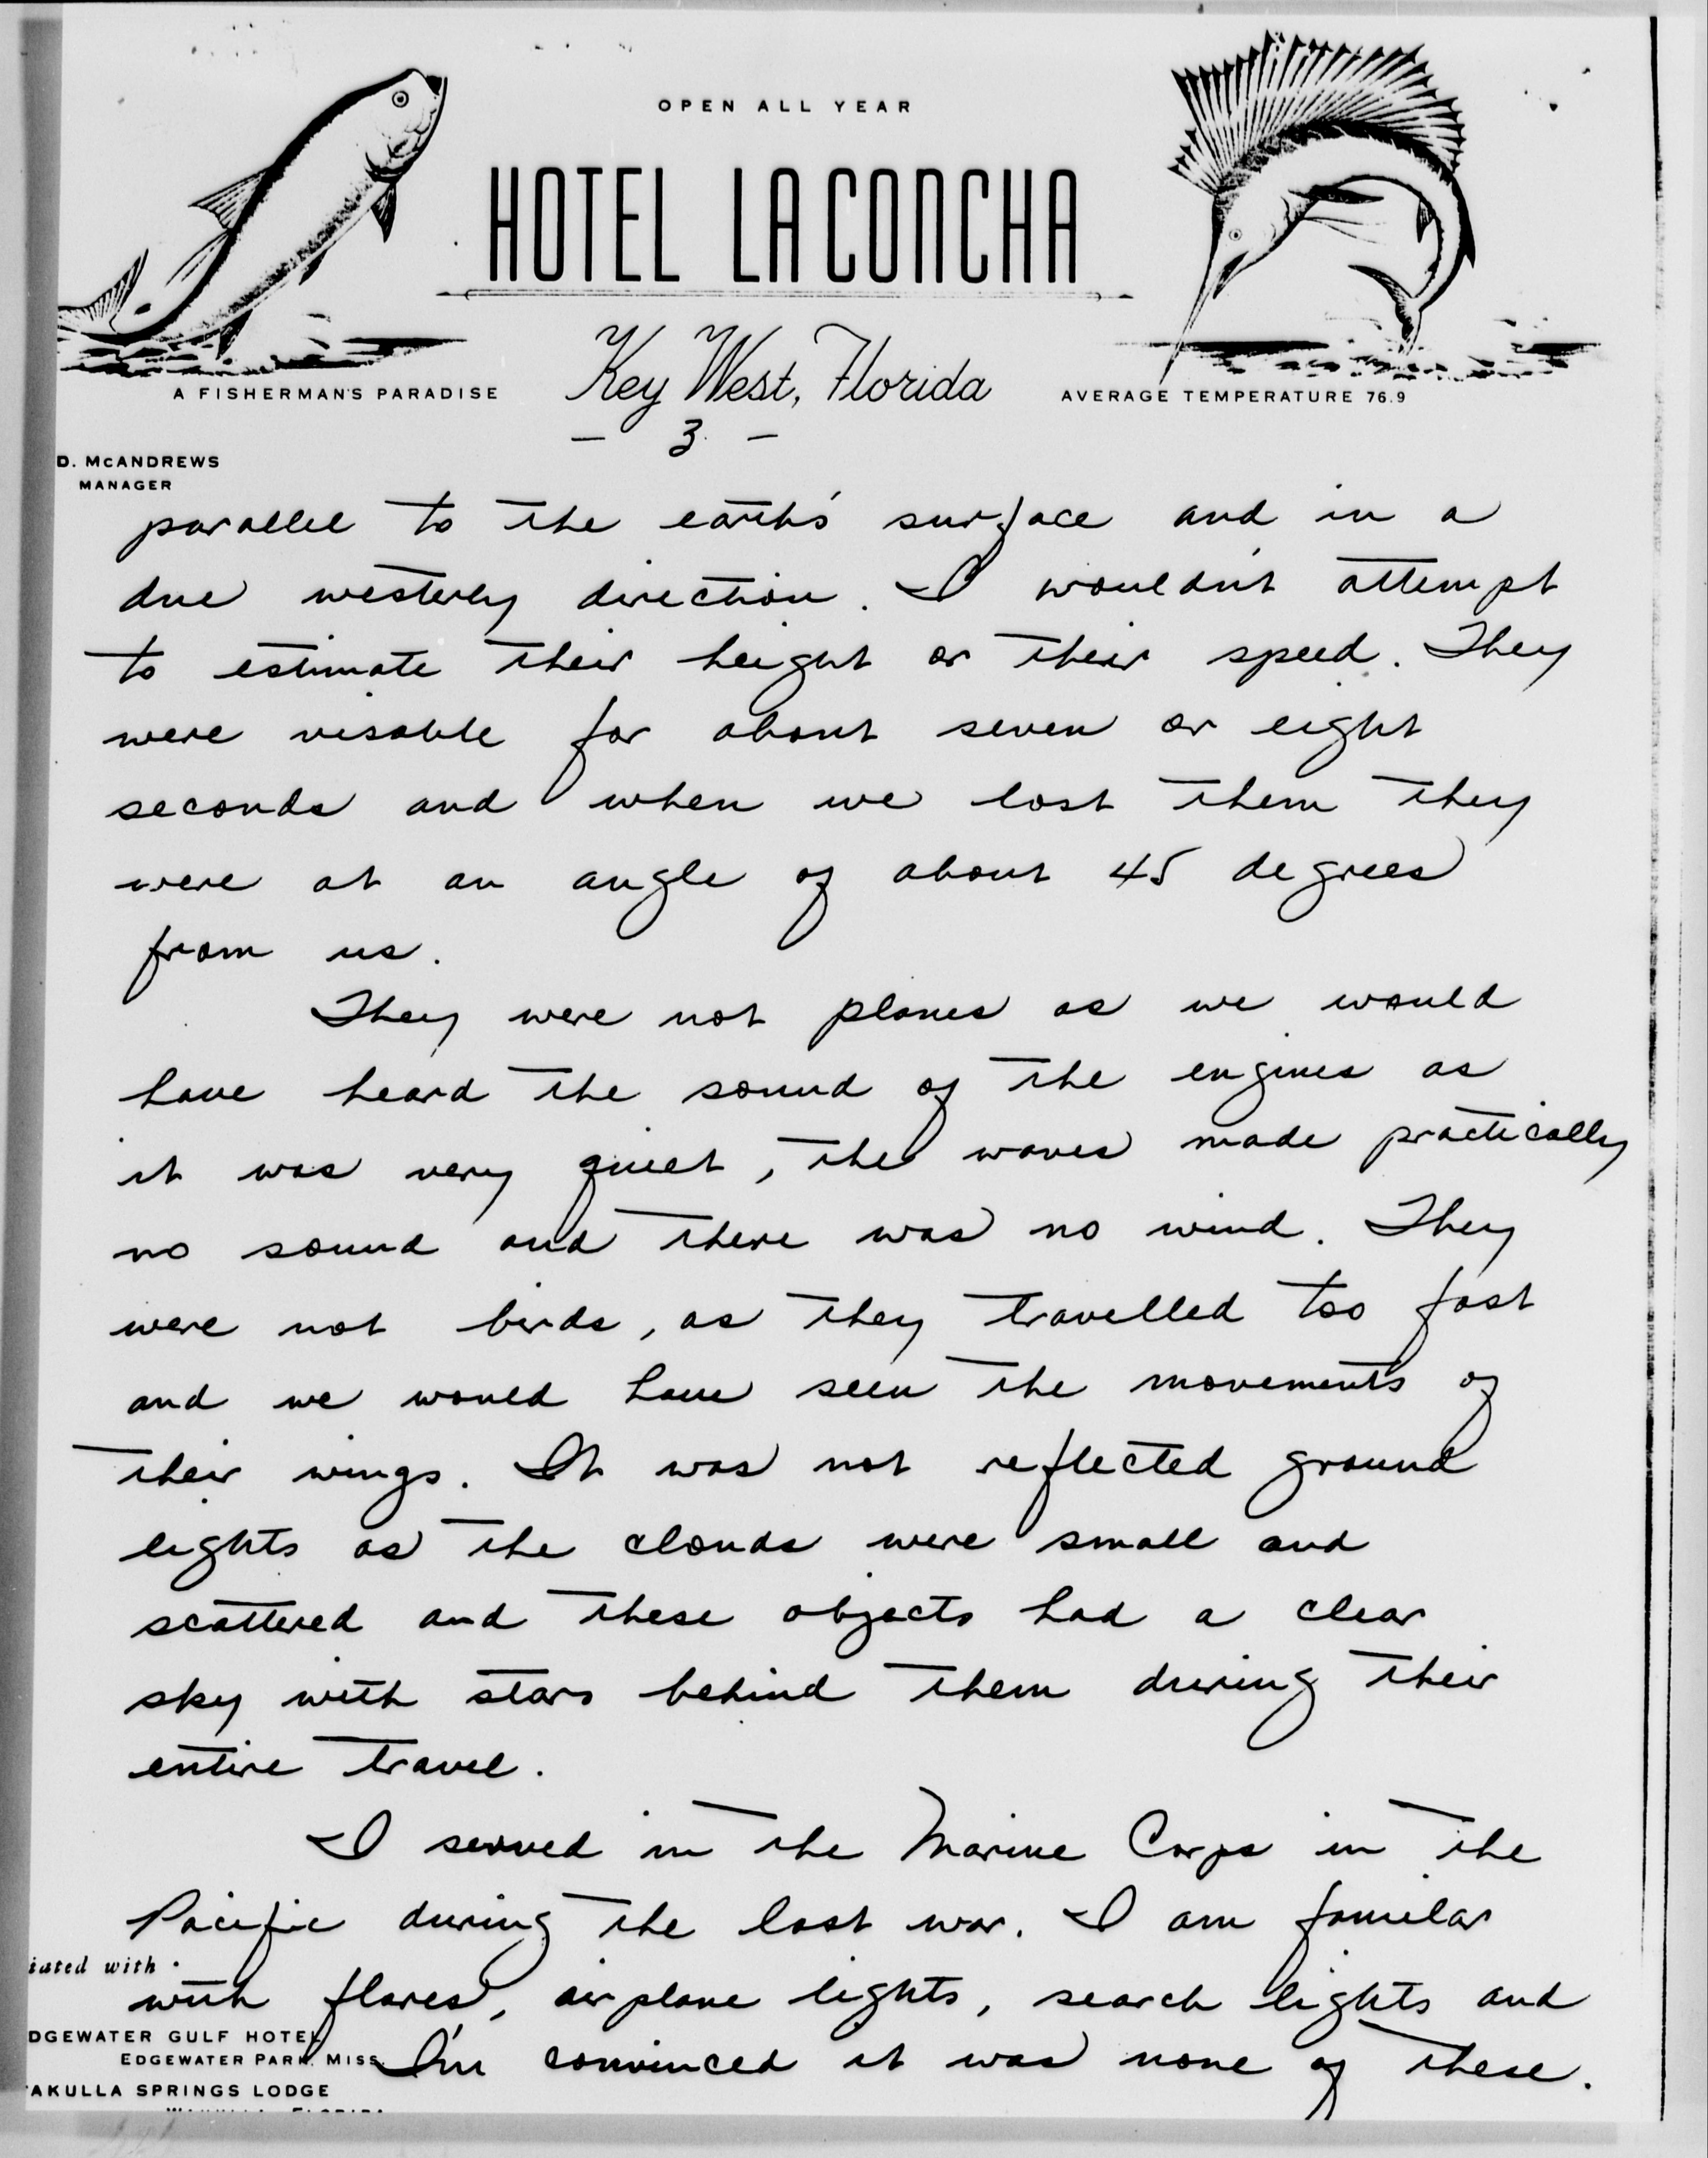 OPEN ALL YEAR
HOTEL LA CONCHA
Key West, Florida
A FISHERMAN'S PARADISE
AVERAGE TEMPERATURE 76.9
- 3 -
D. McANDREWS
MANAGER
parallel to the earth's surface and in a
due westerly direction. I wouldn't attempt
to estimate their height or their speed. They
were visable for about seven or eight
seconds and when we lost them they
were at an angle of about 45 degrees
from us.
They were not planes as we would
have heard the sound of the engines as
it was very quiet, the waves made practically
no sound and there was no wind. They
were not birds, as they travelled too fast
and we would have seen the movements of
their wings. It was not reflected ground
lights as the clouds were small and
scattered and these objects had a clear
sky with stars behind them during their
entire travel.
I served in the Marine Corps in the
Pacific during the last war. I am familar
iated with
with flares, airplane lights, search lights and
DGEWATER GULF HOTEL
EDGEWATER PARK, MISS.
I'm convinced it was none of these.
AKULLA SPRINGS LODGE